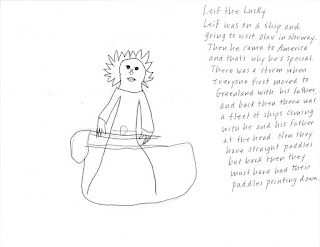 Leif the Lucky
Leif was on a ship and
going to visit Olav in Norway.
Then he came to America
and that's why he's special.
There was a storm when
everyone first moved to
Greenland with his father,
and back then there was
a fleet of ships coming
with he and his father
at the head. Now they
have straight paddles
but back then they
must have had their
paddles pointing down.